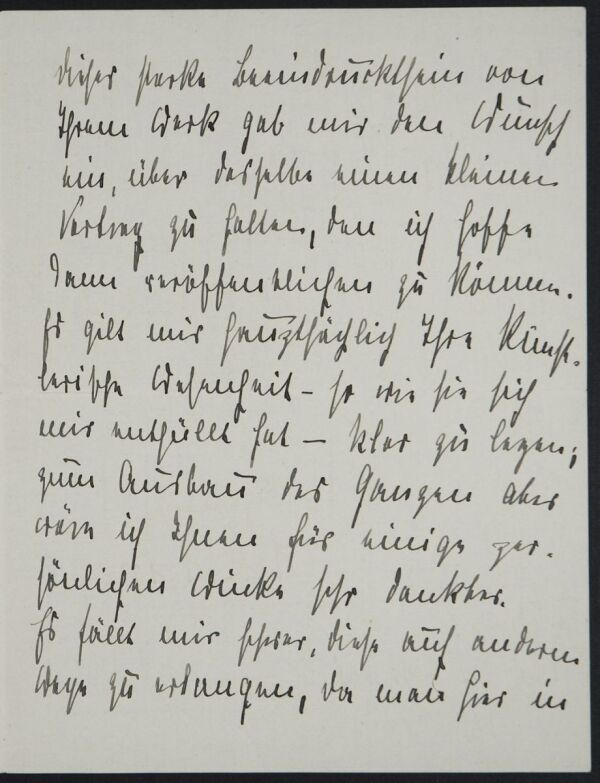 dieses starke Beeindrucktsein von
Ihrem Werk gab mir den Wunsch
ein, über dasselbe einen kleinen
Vortrag zu halten, den ich hoffe
dann veröffentlichen zu können.
Es gilt mir hauptsächlich Ihre Künst-
lerische Wesenheit – so wie sie sich
mir enthüllt hat – klar zu legen;
zum Ausbau des Ganzen aber
wäre ich Ihnen für einige per-
sönlichen Winke sehr dankbar.
Es fällt mir schwer, diese auf anderem
Wege zu erlangen, da man hier in